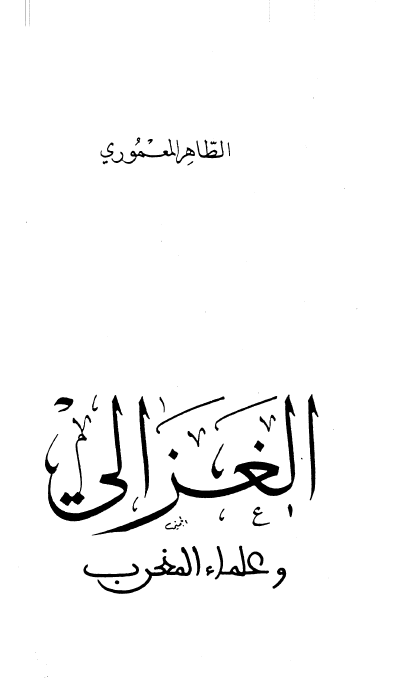 الطّاهِر المَعْمُوري
الغزالي
وعلماء المغرب